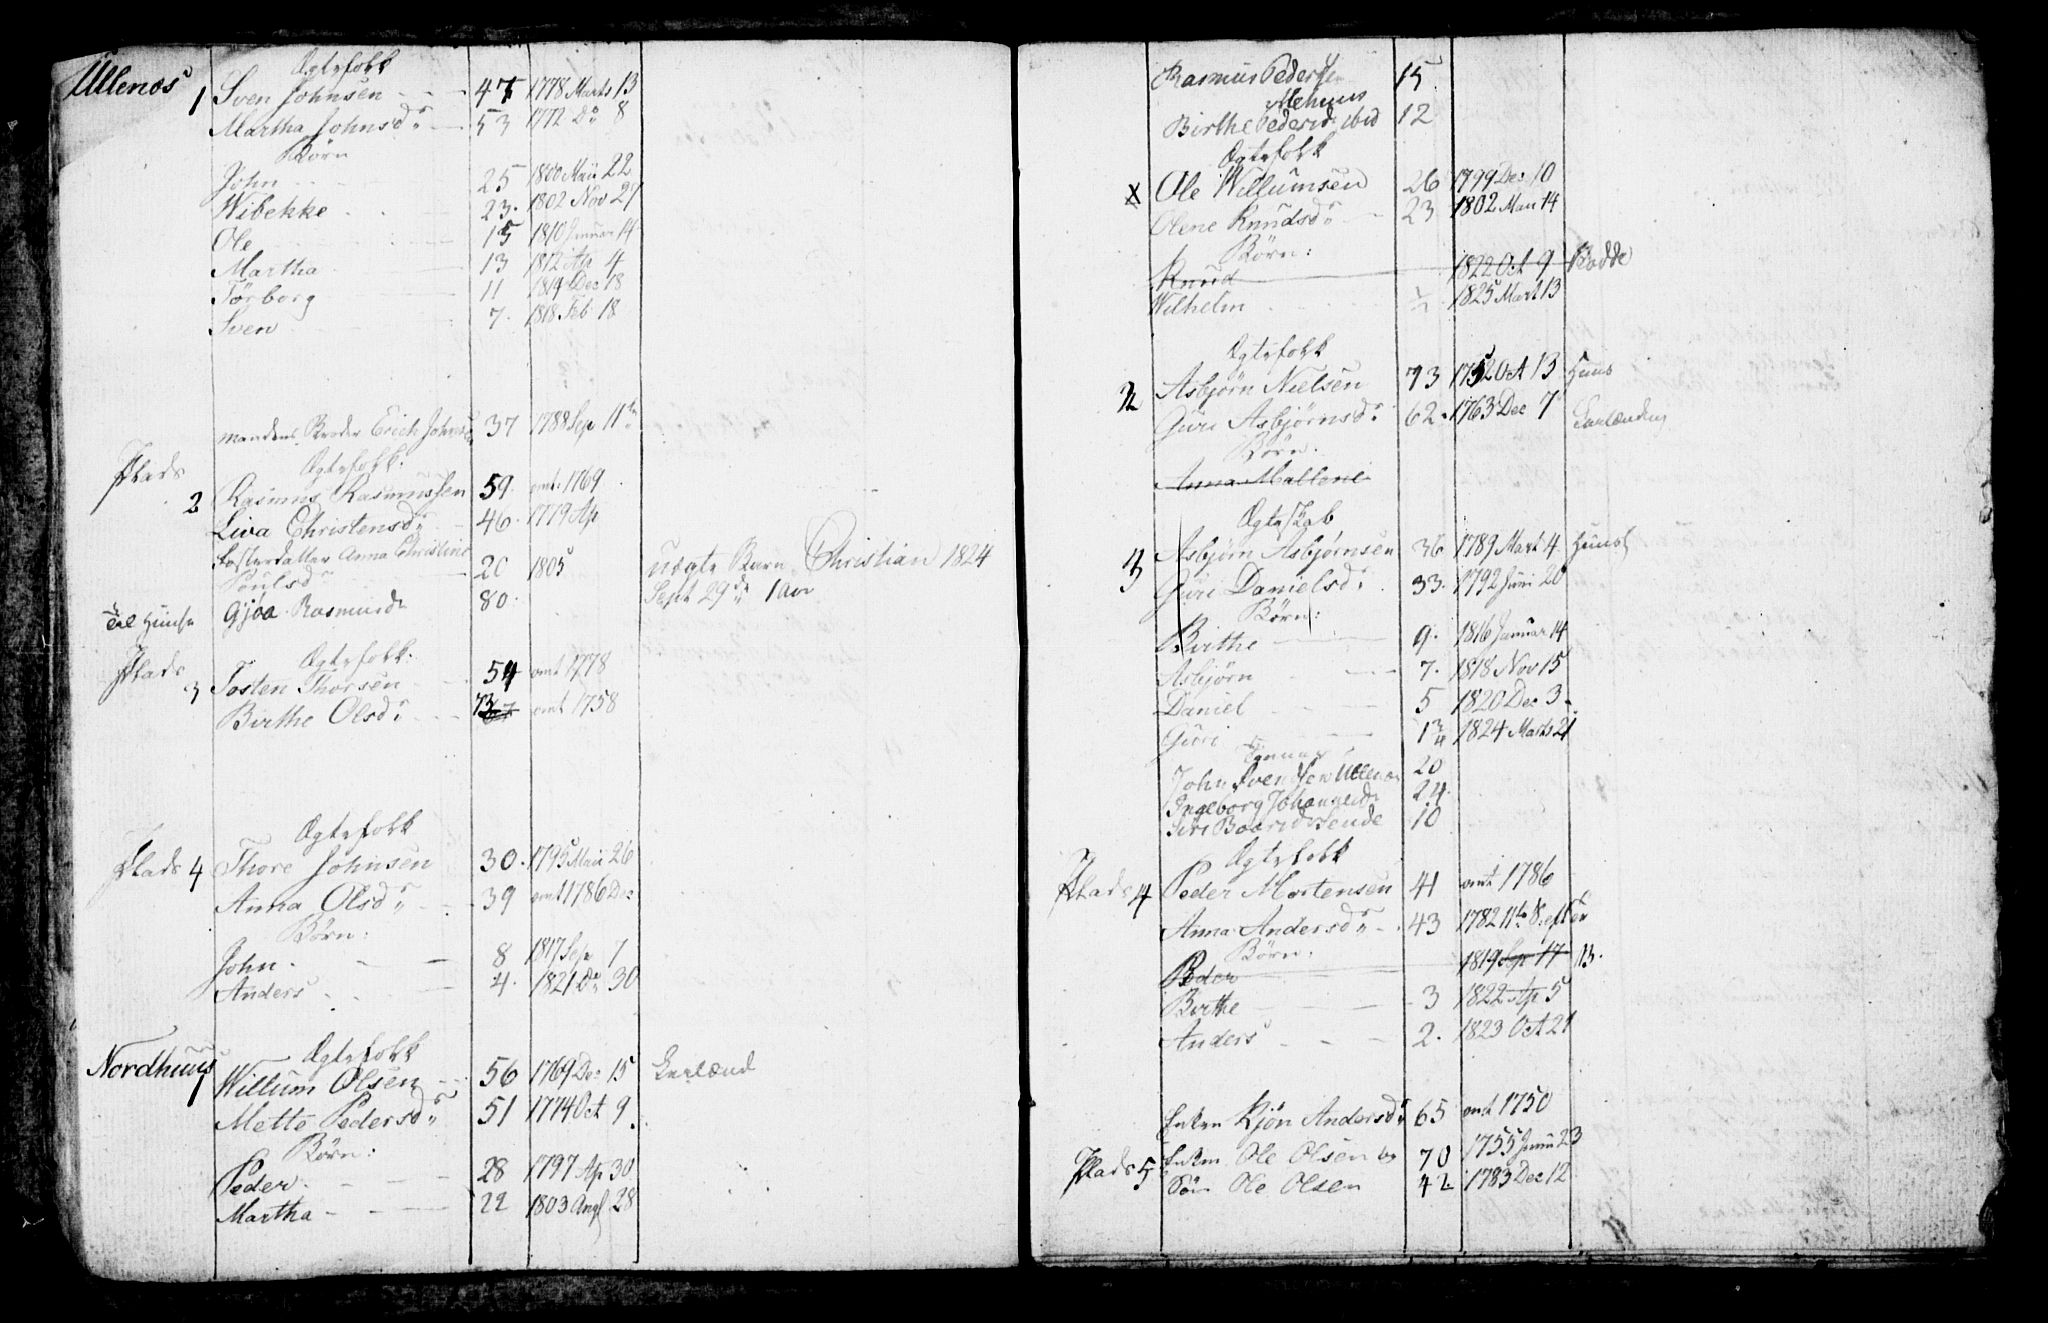 Ullenæs
Ægtefolk
1 Sven Johnsen 47 1778 Marts 13
Martha Johnsd: 53 1772 D: 8
Børn
John 25 1800 Maii 22
Wibekke 23. 1802 Nov 27
Ole 15 1810 Januar 14
Martha 13 1812 Ap 4
Törborg 11 1814 Dec 18
Sven 7. 1818 Feb 18
Mandens Broder Erich Johns 37 1788 Sep 11te
Plads Ægtefolk.
2 Rasmus Rasmussen 59. omt 1769
Liva Christensd: 46. 1779 Ap
Datter Anna Christine
Poulsd 20 1805 uægte Barn Christian 1824
Sept 29de 1 Aar
Gjøa Rasmusd 80.
Plads Ægtefolk.
3 Tosten Thorsen 54 omt 1778
Birthe Olsd: 73 omt 1758
Ægtefolk
Plads 4 Thore Johnsen 30. 1795 Maii 26
Anna Olsd: 39 omt 1786 Dec
Børn:
John. 8 1817 Sep 7
Anders 4. 1821 D: 30
Ægtefolk
Nordhuus 1 Willum Olsen 56 1769 Dec 15
Mette Pedersd: 51 1774 Oct 9.
Børn:
Peder. 28 1797 Ap 30
Martha 22 1803 Aug 28
Rasmus Pedersen 15.
Mehuus
Birthe Pedersd ibid 12
Ægtefolk
X Ole Willumsen 26 1799 Dec 10
Olene Knudsd: 23 1802 Maii 14
Børn:
Knud 1822 Oct 9
Wilhelm ½ 1825 Mart 13
Ægtefolk
2 Asbjørn Nielsen 73 1752 Oct 13 Huus
Guri Asbjørnsd: 62. 1763 Dec 7
Børn.
Anna Mallene
Ægteskab
3 Asbjørn Asbjørnsen 36 1789 Mart 4
Guri Danielsd: 33. 1792 Juni 20
Børn:
Birthe 9. 1816 Januar 14
Asbjørn 7. 1818 Nov 15
Daniel 5 1820 Dec 3.
Guri 1¾ 1824 Marts 21
John Svendsen Ullenæs 20
Ingeborg Johannesd 24.
Siri 10
Ægtefolk
Plads 4 Peder Mortensen 41 omt 1786
Anna Andersd: 43 1782 11te
Børn:
Peder 1819 Sep 17
Birthe 3 1822 Ap 5
Anders 2. 1823 Oct 21
Enken Kjøn Andersd: 65 omt 1750
Plads 5 Enkm Ole Olsen og 70 1755 Juni 23
Søn Ole Olsen 42 1783 Dec 12